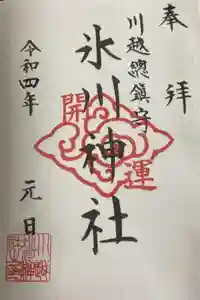 奉拝
川越總鎮守
氷川神社
開運
令和四年 元日